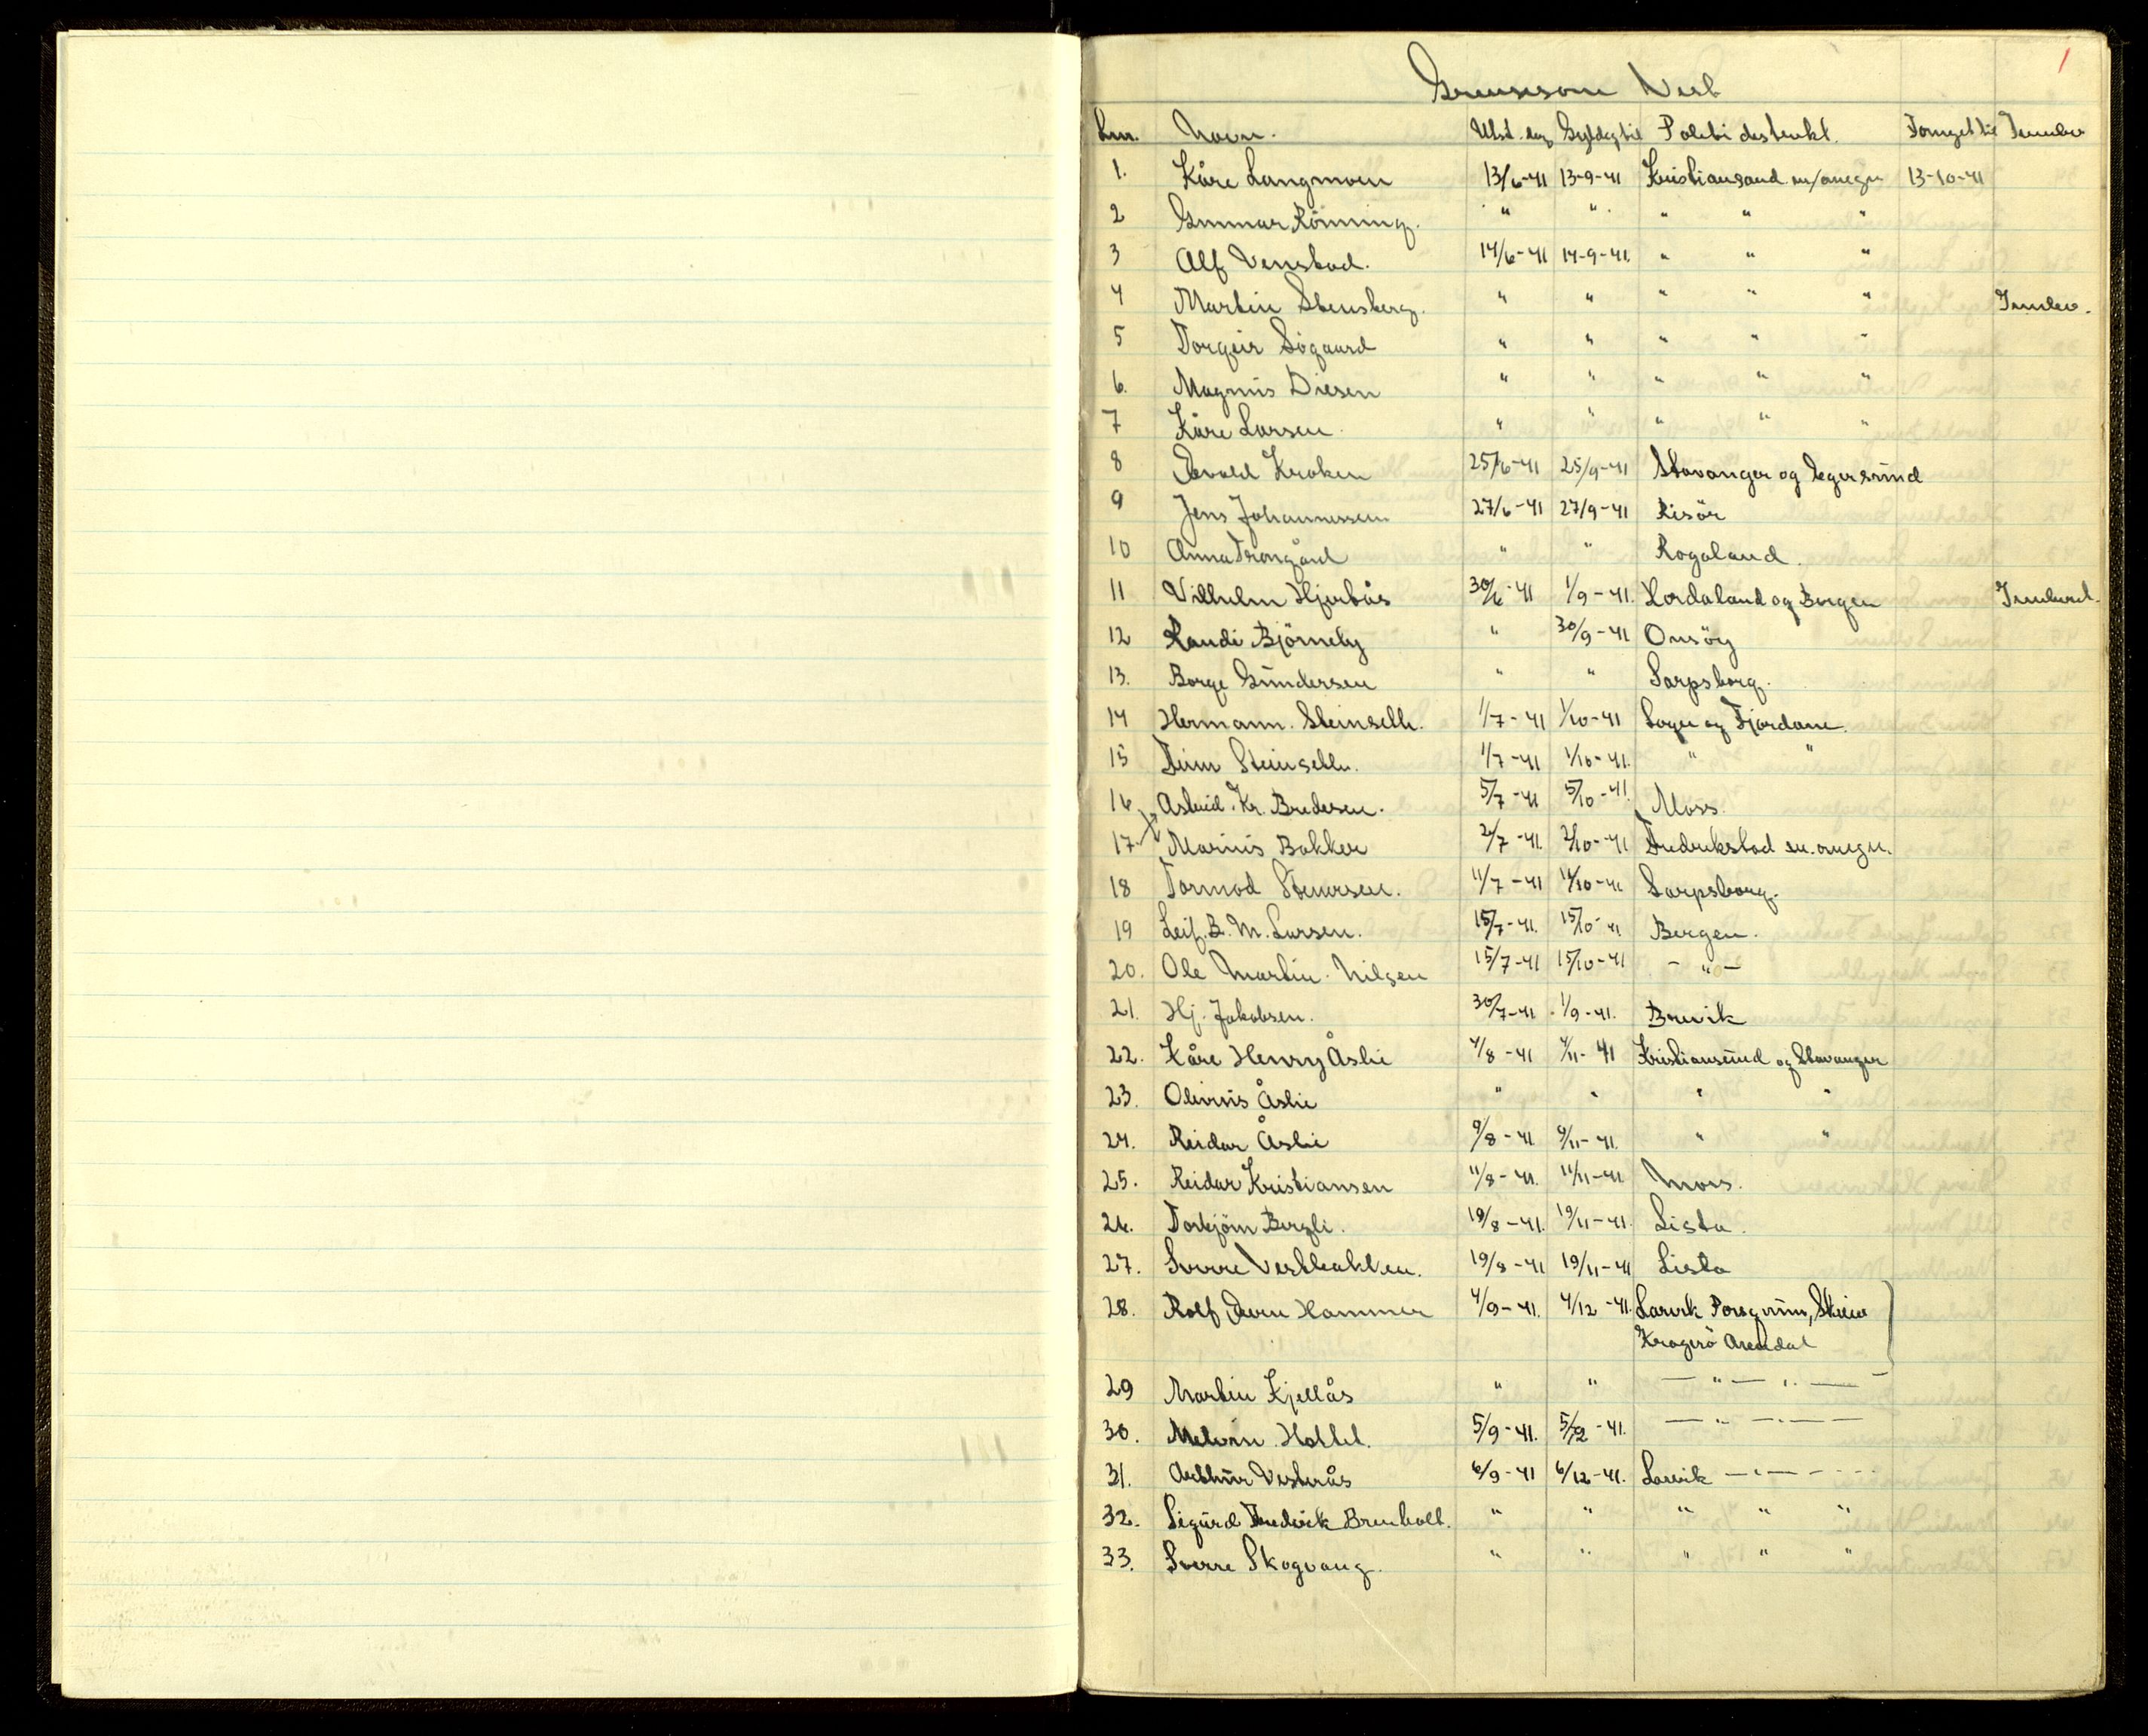 1
Grensesone Vest
Lnr. Navn. Utst. dag Gyldig til Politidistrikt. Fornyet til Innlev
1. Kåre Langmoen 13/6-41 13-9-41 Kristiansand m/omegn 13-10-41
2 Gunnar Rönning. " " " " "
3 Alf Venstad. 14/6-41 14-9-41. " " "
4 Martin Stensberg. " " " " " Innlev.
5 Torgeir Sögaard " " " " "
6. Magnus Diesen " " " " "
7 Kåre Larsen. " " " " "
8 Edvald Kroken 25/6-41 25/9-41 Stavanger og Egersund
9 Jens Johannessen 27/6-41 27/9-41 Risör
10 Anna Trongård " " Rogaland.
11 Vilhelm Hjertås 30/6-41 1/9-41. Hordaland og Bergen Innlevert.
12 Randi Björneby " 30/9-41 Onsöy
13. Borge Gundersen " " Sarpsborg.
14 Hermann. Steinseth. 1/7-41 1/10-41 Sogn og Fjordane.
15 Finn Steinseth. 1/7-41 1/10-41. " "
16 Astrid. Kr. Bredesen. 5/7-41 5/10-41. Moss.
17. Marius Bakker 2/7-41. 2/10-41 Fredrikstad m. omegn.
18 Tormod Stenersen. 11/7-41 11/10-41 Sarpsborg.
19 Leif. B. M. Larsen. 15/7-41. 15/10-41 Bergen.
20. Ole Martin. Nilsen 15/7-41 15/10-41 - " -
21. Hj. Jakobsen. 30/7-41 1/9-41. Brevik
22. Kåre Henry Åslie 4/8-41 4/11-41 Kristiansund og Stavanger
23. Olivius Åslie " " " "
24. Reidar Åslie 9/8-41 9/11-41. " "
25. Reidar Kristiansen 11/8-41. 11/11-41 Moss.
26. Torbjörn Bergli. 19/8-41. 19/11-41. Lista.
27. Sverre Vestbakken. 19/8-41 19/11-41 Lista
28. Rolf Even Hammer 4/9-41. 4/12-41. Larvik Porsgrunn, Skien
Kragerö Arendal
29 Martin Kjellås " " — " — " —
30. Hottel. 5/9-41. 5/12-41. — " — " —
31. Arthur Vesterås 6/9-41 6/12-41. Larvik — " —
32. Sigurd Fredrick Brenholt. " " " " "
33. Sverre Skogvang. " " " " "